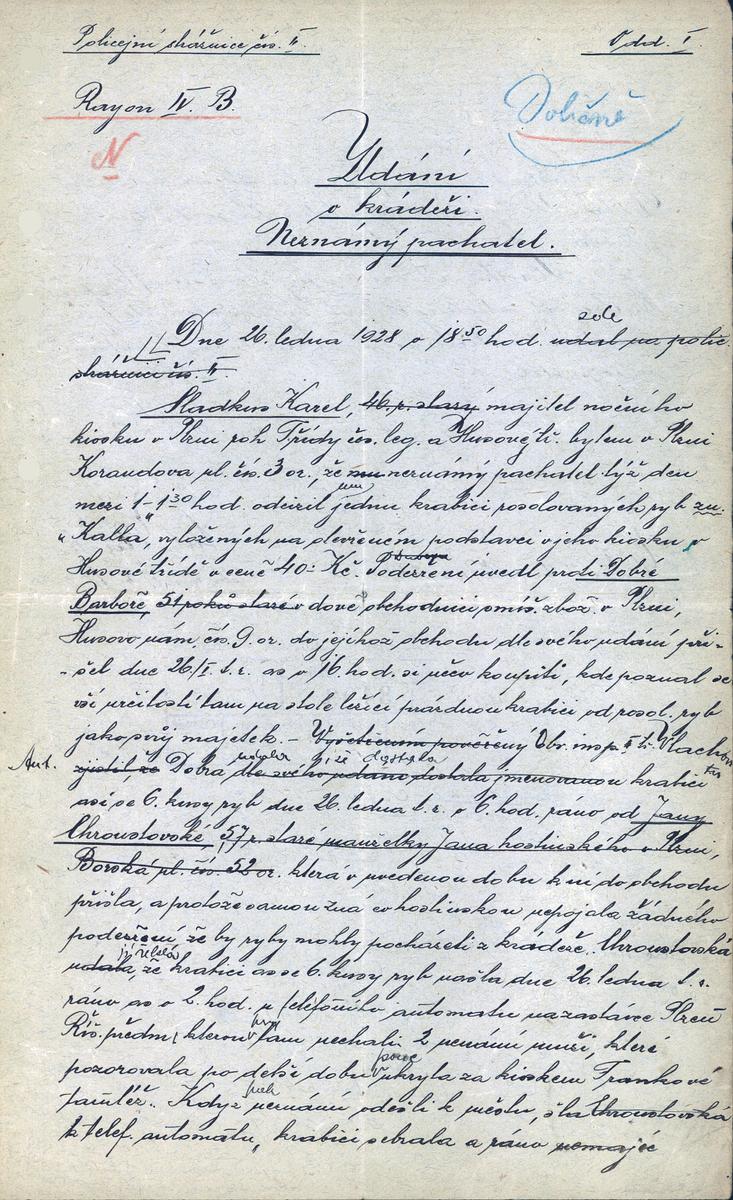 Policejní strážnice čís. II. Odd. I.
Rayon IV. B.
N
Udání
o krádeži.
Neznámý pachatel.
Dne 26. ledna 1928 o 18⁵⁰ hod. udal na polic.
strážnici čís. II.
Sladkus Karel, 46 r. starý majitel nočního
kiosku v Plzni roh Třídy čs. leg. a Husovy tř. bytem v Plzni
Korandova ul. čís. 3 or., že mu neznámý pachatel týž den
mezi 1–1³⁰ hod. odcizil jednu krabici rosolovaných ryb zn.
„Kalla“, vyložených na otevřeném podstavci v jeho kiosku v
Husově třídě v ceně 40·Kč. Podezření uvedl proti Dobré
Barboře, 51 roků staré vdově obchodnici smíš. zbož. v Plzni,
Husovo nám. čís. 9. or. do jejíhož obchodu dle svého udání při-
-šel dne 26/I t. r. as o 16 hod. si něco koupiti, kde poznal se
vší určitostí tam na stole ležící prázdnou krabici od rosol. ryb
jako svůj majetek. – Vyšetřením pověřený Obv. insp. II. tř. Vlach
Aut. zjistil že Dobrá udala, že dostala dle svého udání dostala jmenovanou krabici
asi se 6. kusy ryb dne 26. ledna t. r. o 6. hod. ráno od Jany
Chroustovské, 57 r. staré manželky Jana hostinského v Plzni,
Borská ul. čís. 52 or. která v uvedenou dobu k ní do obchodu
přišla, a protože samou zná co hostinskou nepojala žádného
podezření, že by ryby mohly pocházeti z krádeže. Chroustovská
udala, že krabici asi se 6. kusy ryb našla dne 26. ledna t. r.
ráno as o 2. hod. u telefonního automatu na zastávce Plzeň
Říš. předm. kterou tam nechali 2 neznámí muži, které
pozorovala po delší dobu ukryta za kioskem Frankové
tamtéž. Když neznámí odešli k městu, šla Chroustovská
k telef. automatu, krabici sebrala a ráno nemajíc